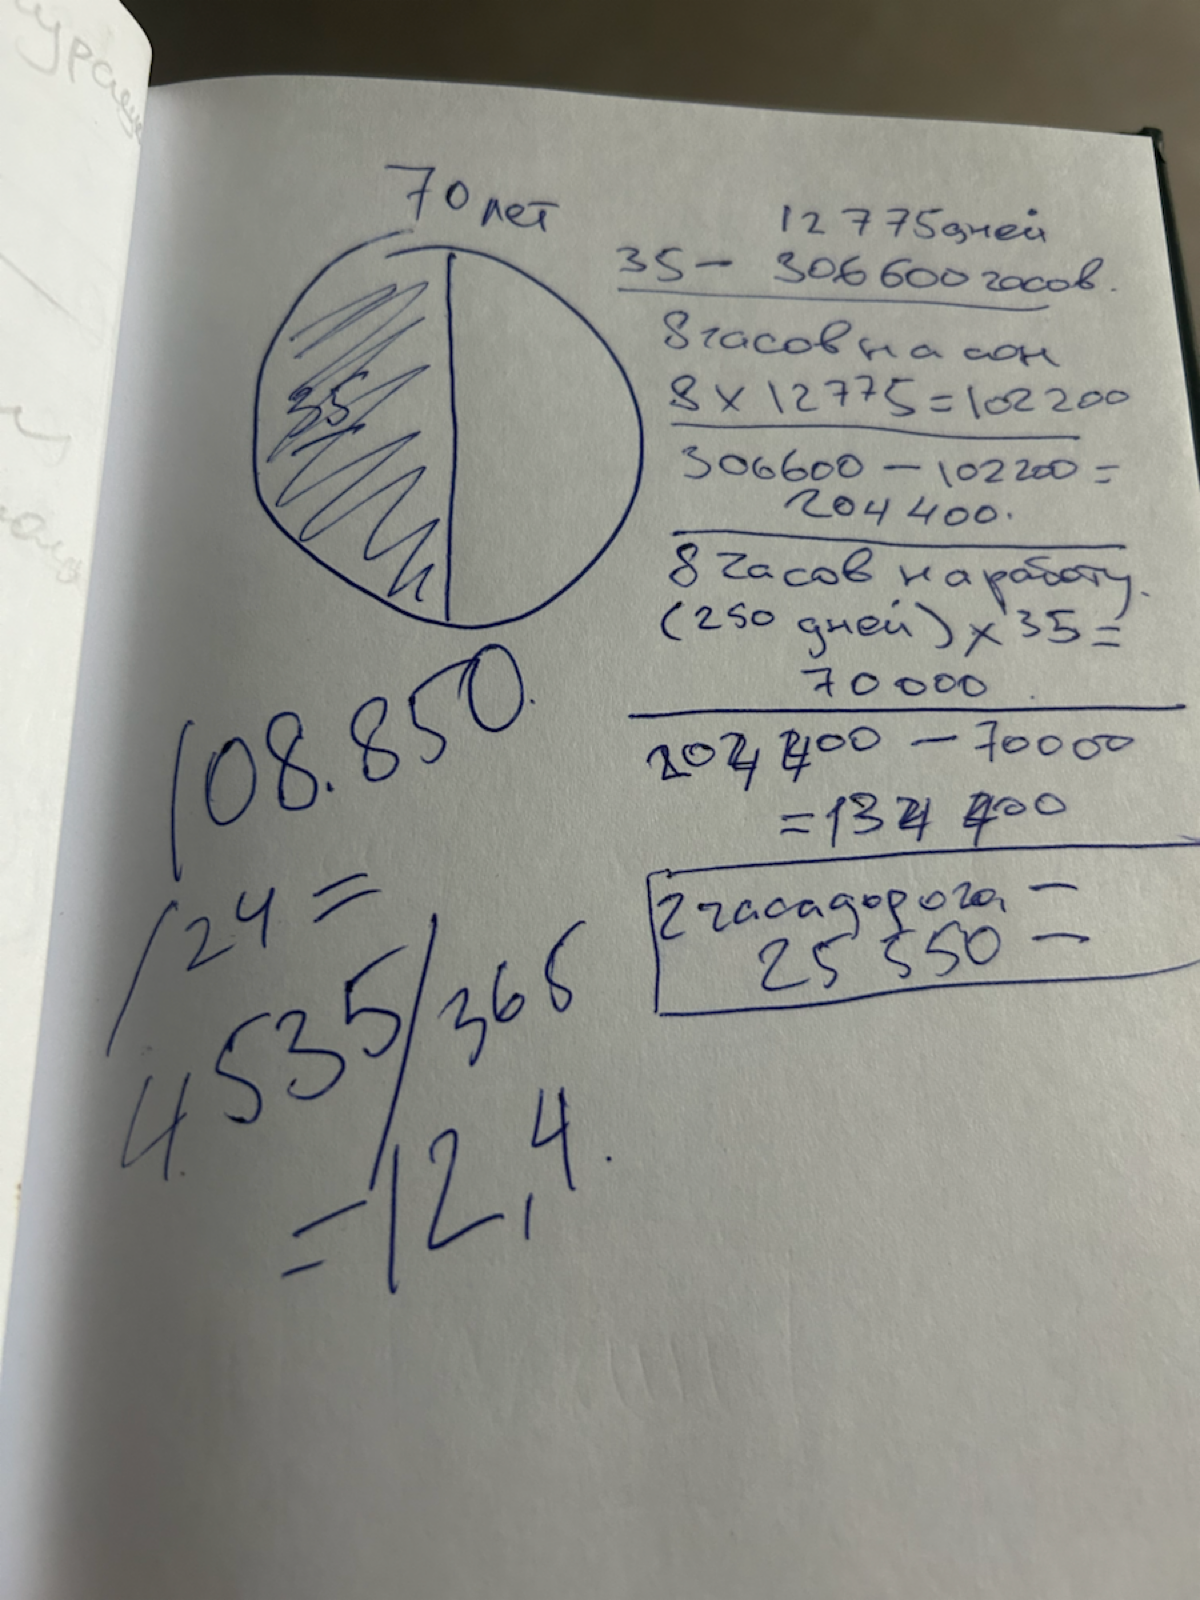 70 лет
35
12 775 дней
35 - 306 600 часов.
8 часов на сон
8 x 12775 = 102200
306600 - 102200 =
204 400.
8 часов на работу.
(250 дней) x 35 =
70 000
204 400 - 70000
= 134 400
2 часа дорога -
25 550 -
108.850.
/24 =
4.535/365
= 12,4.